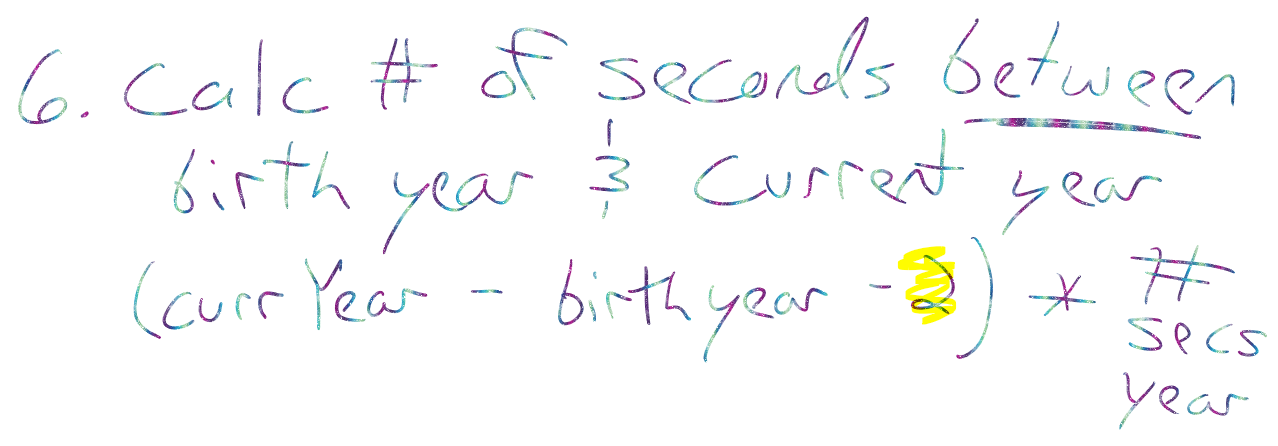 6. Calc # of seconds between
birth year & current year
(currYear - birthyear - 2) * #
secs
year